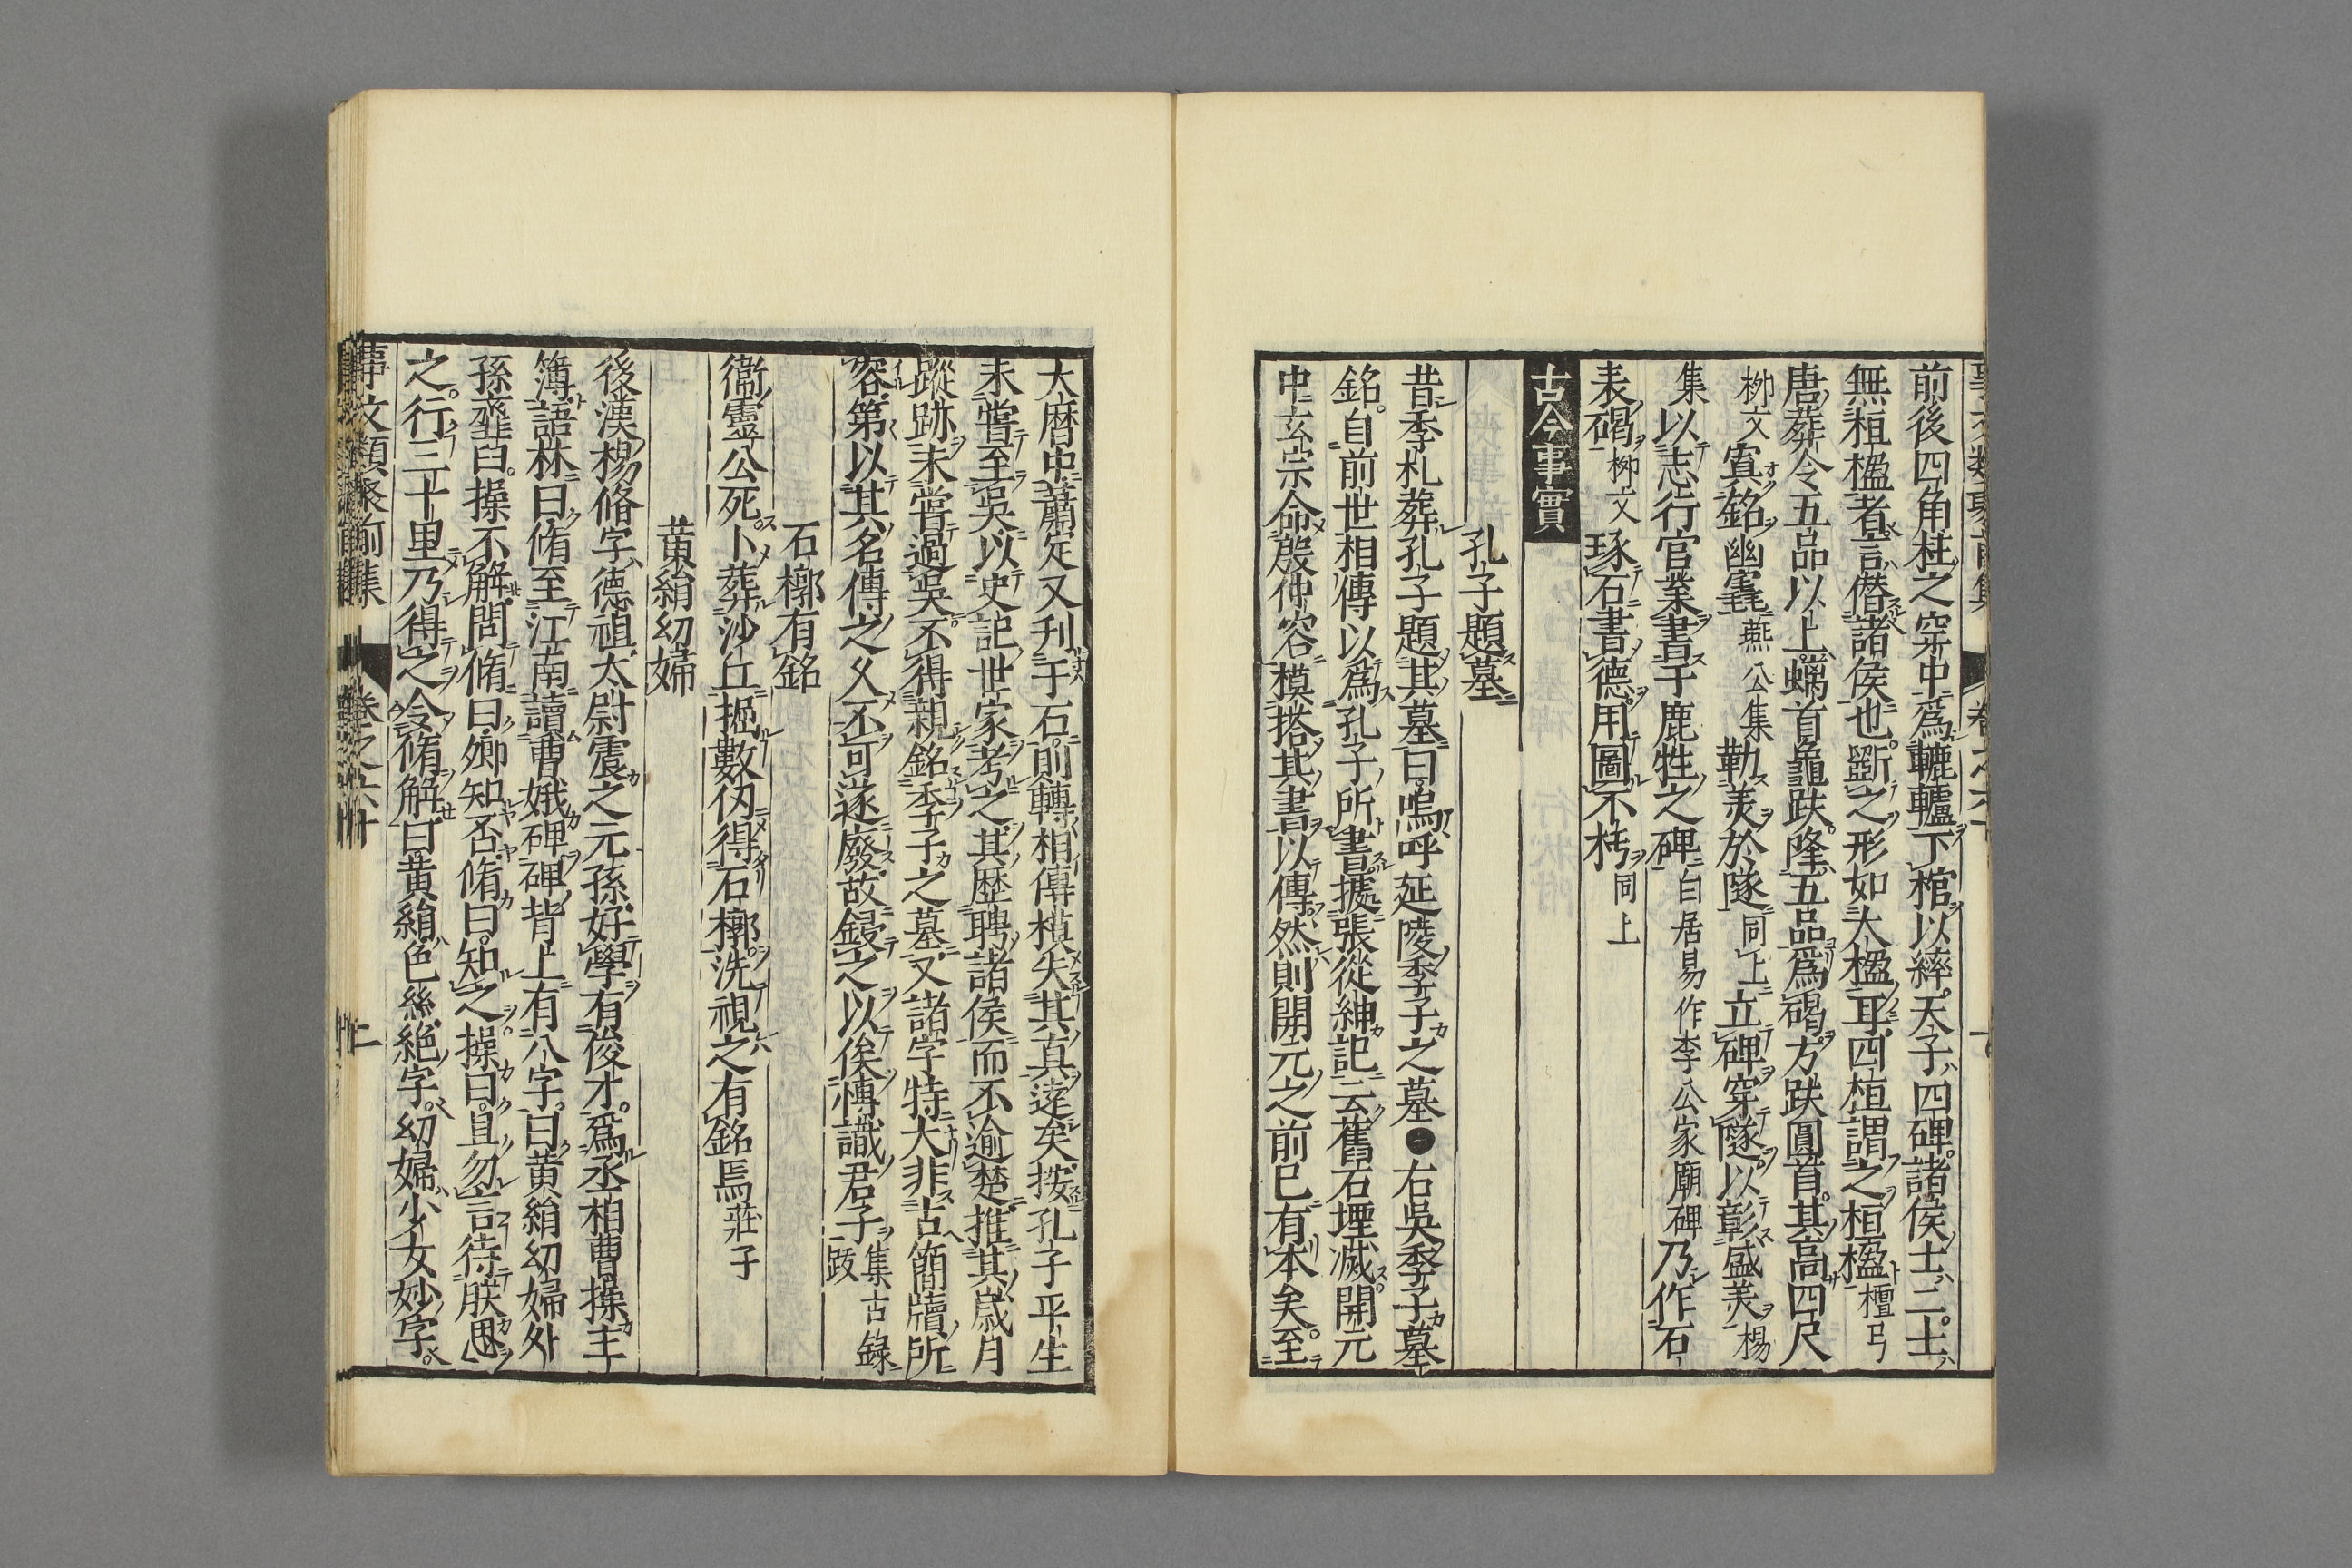 事文類聚前集 卷之六十
前後四角柱之穿中爲轆轤下棺以繂天子四碑諸侯士二士
無桓楹者言僭諸侯也斵之形如大楹耳四桓謂之桓楹檀弓
唐葬令五品以上螭首龜趺隆五品爲碣方趺圓首其高四尺
柳文寘銘幽竁燕公集勒美於隧同上立碑穿隧以彰盛美楊
集以志行官業書于鹿牲之碑白居易作李公家廟碑乃作石
表碣柳文琢石書德用圖不朽同上
古今事實
孔子題墓
昔季札葬孔子題其墓曰嗚呼延陵季子之墓●右吳季子墓
銘自前世相傳以爲孔子所書據張從紳記云舊石堙滅開元
中玄宗命殷仲容模搭其書以傳然則開元之前已有本矣至
大曆中蕭定又刋于石則轉相傳模失其真遠矣按孔子平生
未嘗至吳以史記世家考之其歷聘諸侯而不逾楚推其歲月
蹤跡未嘗過吳不得親銘季子之墓又諸字特大非古簡牘所
容第以其名傳之久不可遂廢故錄之以俟博識君子集古錄跋
石槨有銘
衞靈公死卜葬沙丘掘數仭得石槨洗視之有銘焉莊子
黃絹幼婦
後漢楊脩字德祖太尉震之元孫好學有俊才爲丞相曹操主
簿語林曰脩至江南讀曹娥碑碑背上有八字曰黃絹幼婦外
孫虀臼操不解問脩曰卿知否脩曰知之操曰且勿言待朕思
之行三十里乃得之令脩解曰黃絹色絲絕字幼婦少女妙字
事文類聚前集 卷之六十 二